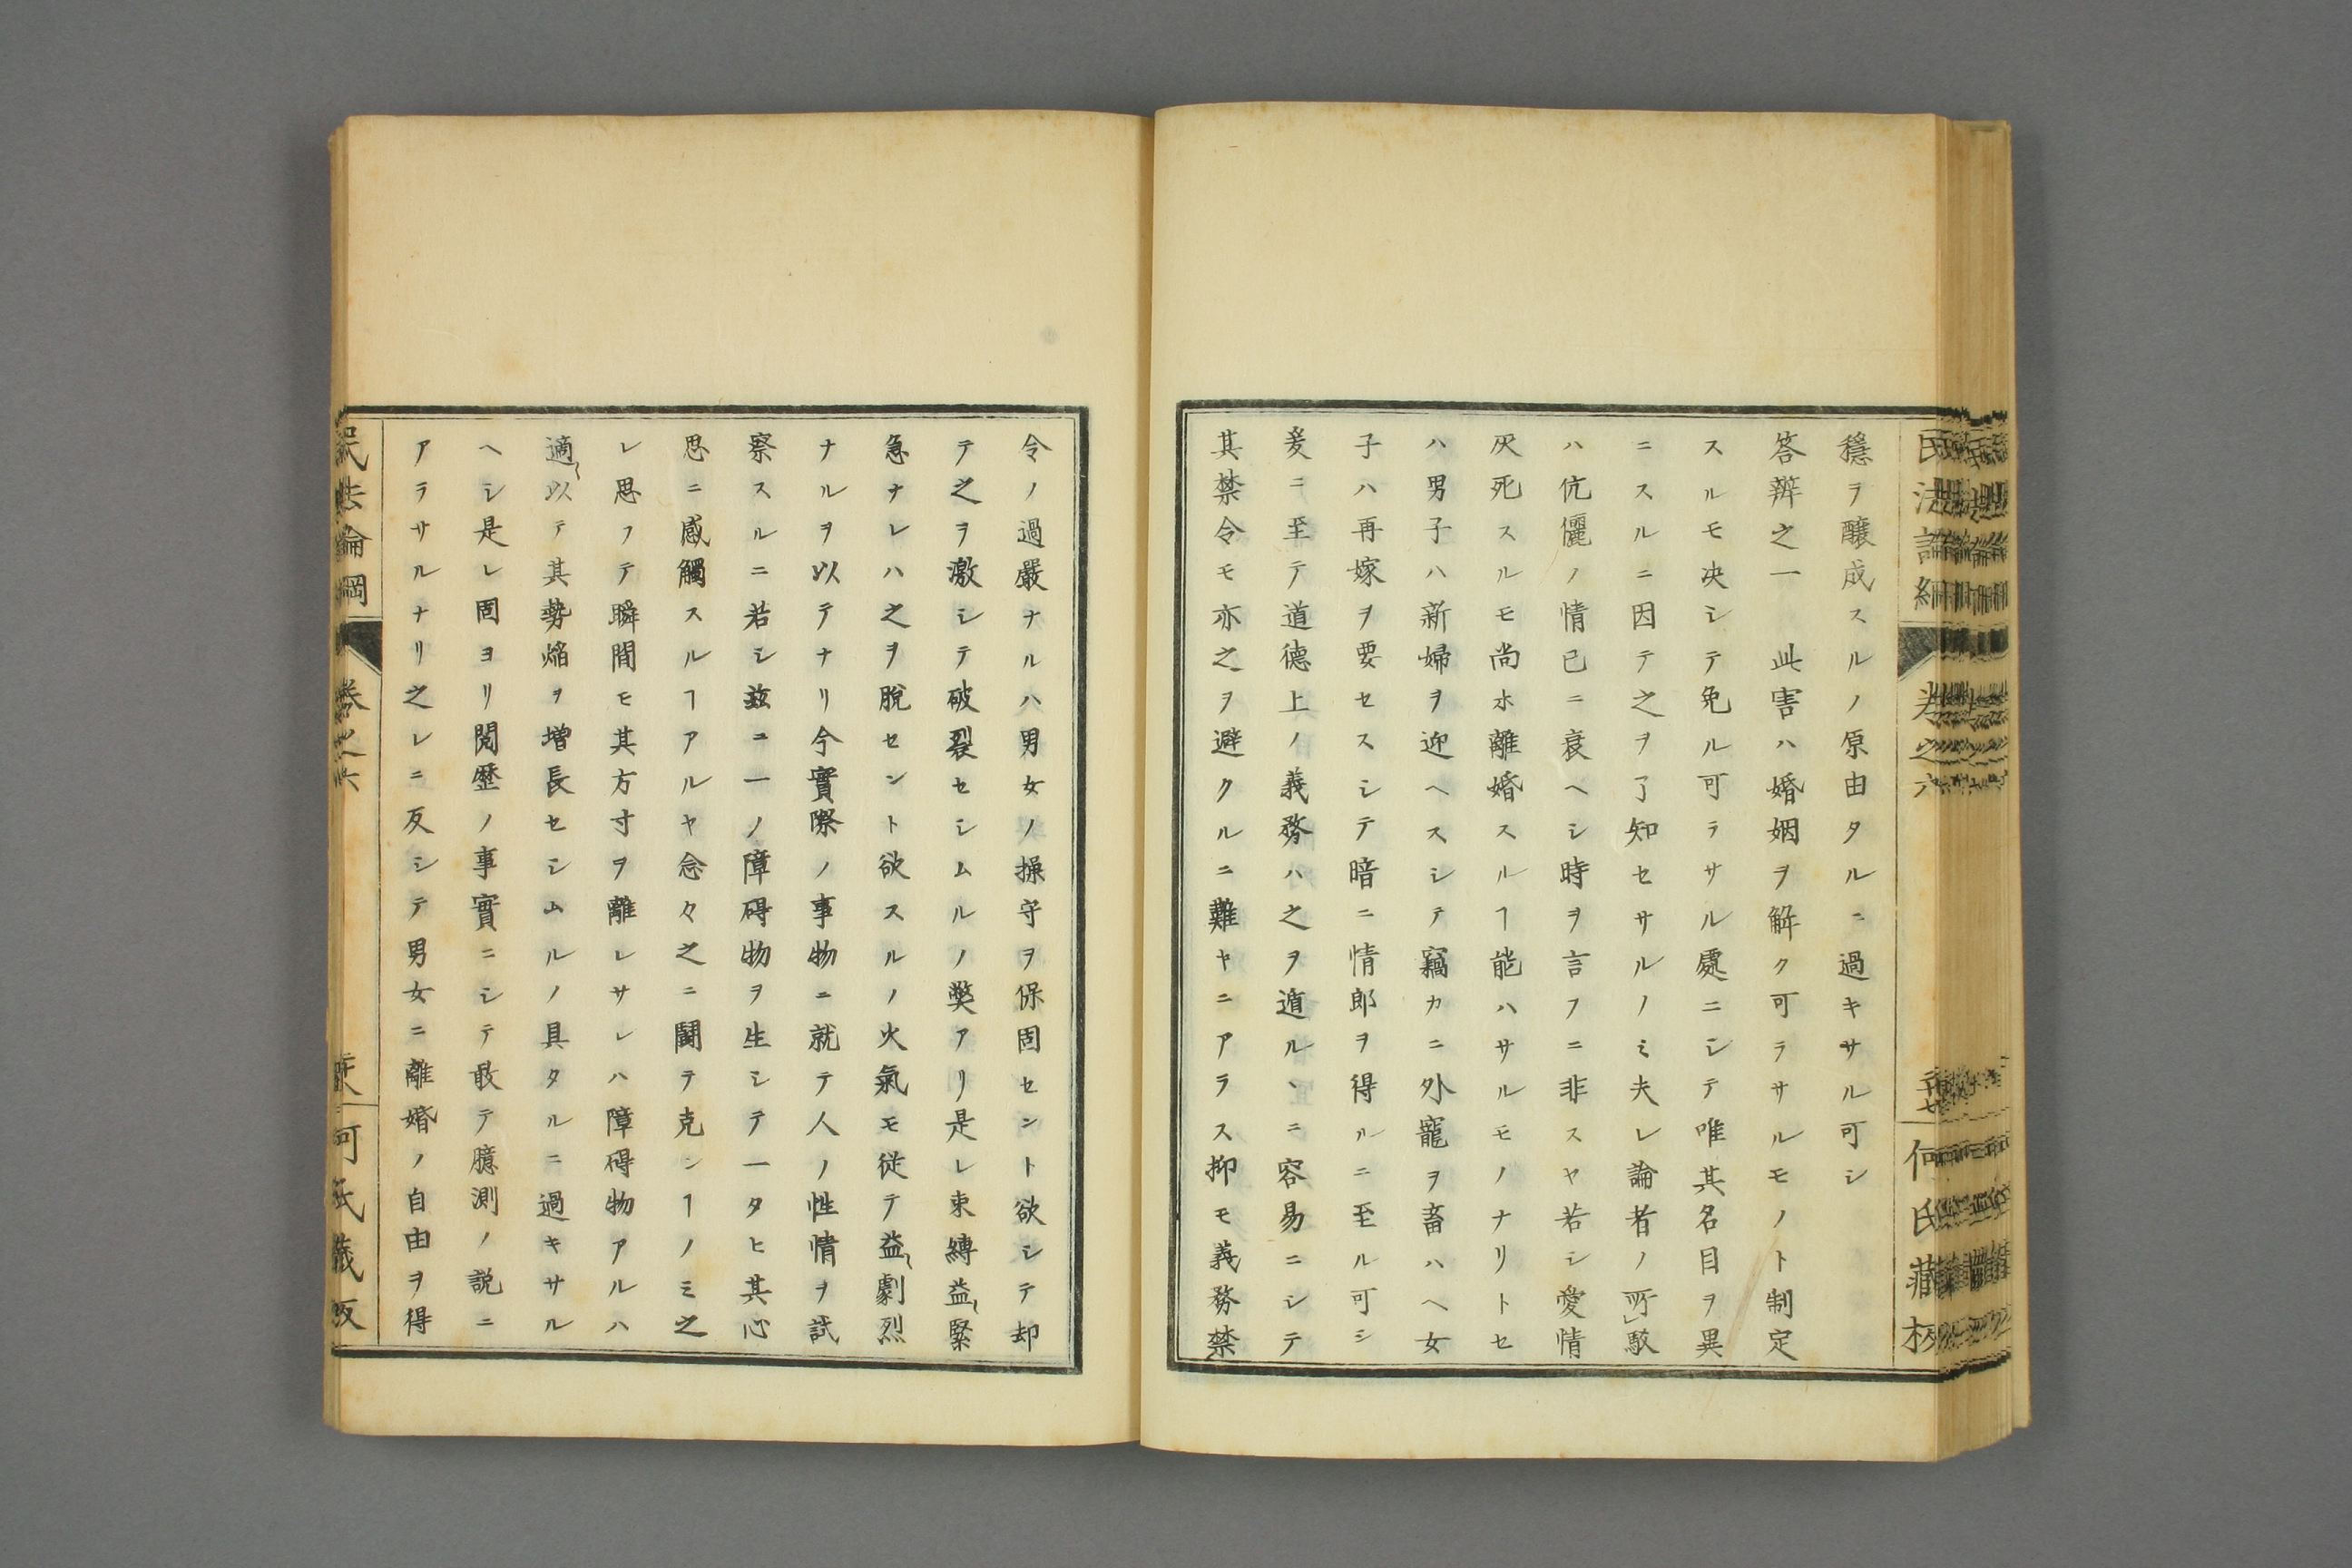 民法論綱 卷之六 何氏藏板
穩ヲ釀成スルノ原由タルニ過キサル可シ
答辨之一 此害ハ婚姻ヲ解ク可ラサルモノト制定
スルモ决シテ免ル可ラサル處ニシテ唯其名目ヲ異
ニスルニ因テ之ヲ了知セサルノミ夫レ論者ノ所駁
ハ伉儷ノ情已ニ衰ヘシ時ヲ言フニ非スヤ若シ愛情
灰死スルモ尚ホ離婚スルヿ能ハサルモノナリトセ
ハ男子ハ新婦ヲ迎ヘスシテ竊カニ外寵ヲ畜ハヘ女
子ハ再嫁ヲ要セスシテ暗ニ情郎ヲ得ルニ至ル可シ
爰ニ至テ道德上ノ義務ハ之ヲ遁ルヽニ容易ニシテ
其禁令モ亦之ヲ避クルニ難ヤニアラス抑モ義務禁
令ノ過嚴ナルハ男女ノ操守ヲ保固セント欲シテ却
テ之ヲ激シテ破裂セシムルノ弊アリ是レ束縛益〻緊
急ナレハ之ヲ脫セント欲スルノ火氣モ從テ益〻劇烈
ナルヲ以テナリ今實際ノ事物ニ就テ人ノ性情ヲ試
察スルニ若シ玆ニ一ノ障碍物ヲ生シテ一タヒ其心
思ニ感觸スルヿアルヤ念々之ニ鬪テ克ンヿノミ之
レ思フテ瞬間モ其方寸ヲ離レサレハ障碍物アルハ
適〻以テ其勢焔ヲ增長セシムルノ具タルニ過キサル
ヘシ是レ固ヨリ閱歷ノ事實ニシテ敢テ臆測ノ說ニ
アラサルナリ之レニ反シテ男女ニ離婚ノ自由ヲ得
民法論綱 卷之六 何氏藏板